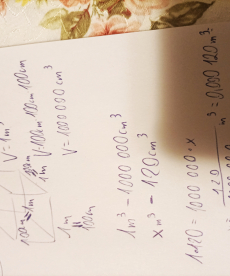 V = 1 m³
V = 100cm · 100cm · 100cm
V = 1000 000 cm³
1m
100cm
1 m³ – 1000 000 cm³
x m³ – 120 cm³
1·120 = 1000 000 · x
120
m³ = 0,000 120 m³